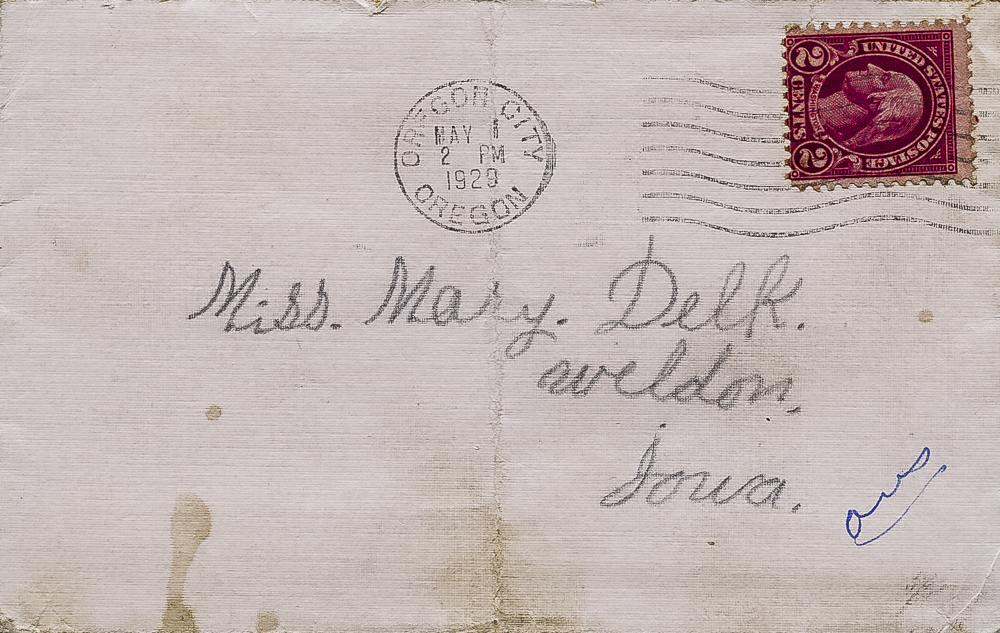 OREGON CITY
MAY 1
2 PM
1929
OREGON
UNITED STATES POSTAGE
2 CENTS 2
Miss. Mary. Delk.
weldon.
Iowa.